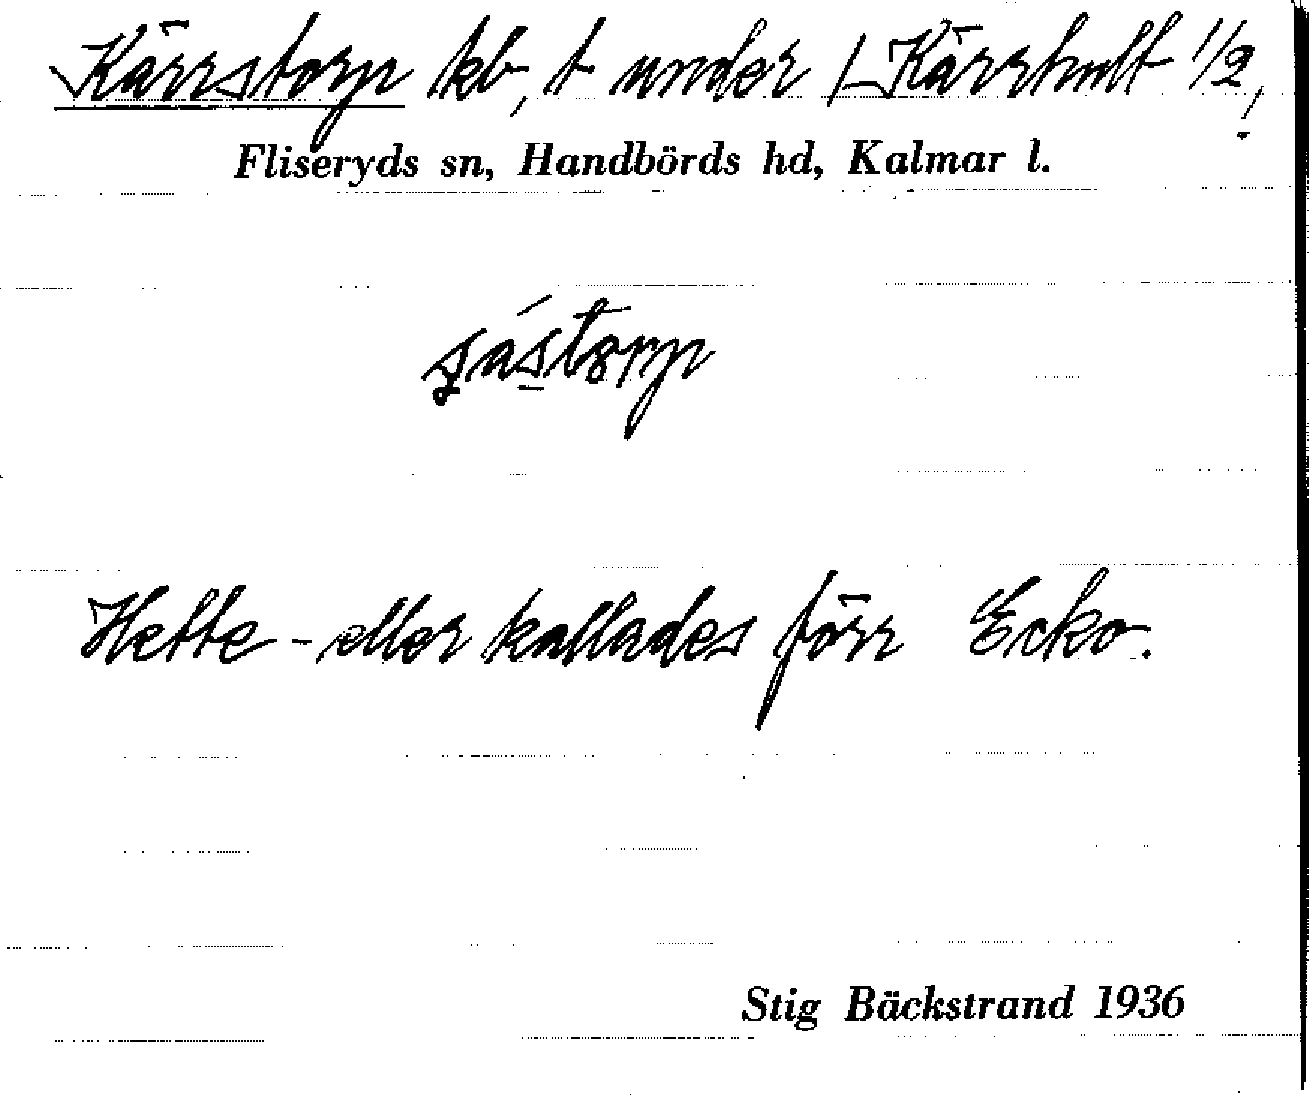 Kärrstorp kb, t under Kärrhult 1/2,
Fliseryds sn, Handbörds hd, Kalmar l.
Hette - eller kallades förr Ecko.
Stig Bäckstrand 1936